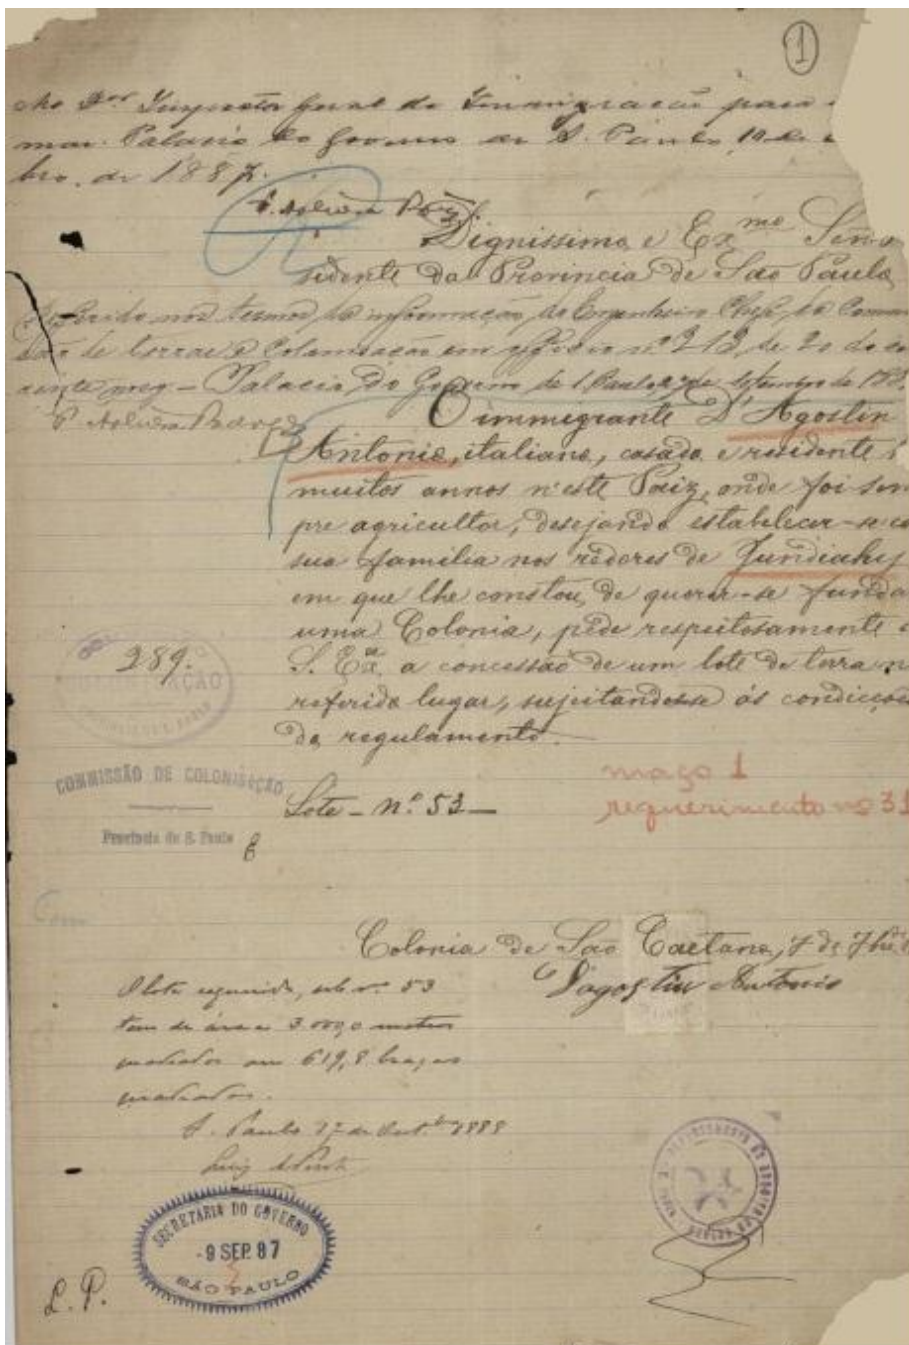 1
Ao Snr Inspector Geral de Immigração para
mar. Palacio do Governo de S. Paulo, 10 de
bro, de 1887.
Dignissimo e Exmo Sen
sidente da Provincia de São Paulo
nos termos da informação do Engenheiro Chefe da Commi
de terras e Colonisação em officio nº 213 de 20 do co
rente mez – Palacio do Governo de S. Paulo, de Setembro de 188
O immegrante D'Agostin
Antonio, italiano, casado e residente
muitos annos n'este Paiz, onde foi sem
pre agricultor, desejando estabelecer-se co
sua familia nos redores de Jundiahy
em que lhe constou, de querer-se funda
uma Colonia, pede respeitosamente
S. Exa. a concessão de um lote de terra n
referido lugar, sujeitandosse ás condicçoes
do regulamento.
289.
COMMISSÃO DE COLONISAÇÃO
Provincia de S. Paulo
Lote – Nº 53 –
maço 1
requerimento nº 31
Colonia de São Caetano, 7 de 7br
Dagostin Antonio
O lote requerido, sob nº 53
tem de área 3.000,0 metros
quadrados ou 619,8 braças
quadradas.
S. Paulo 27 de Outº 1888
Luiz
SECRETARIA DO GOVERNO
-9 SEP. 87
SÃO PAULO
L. P.